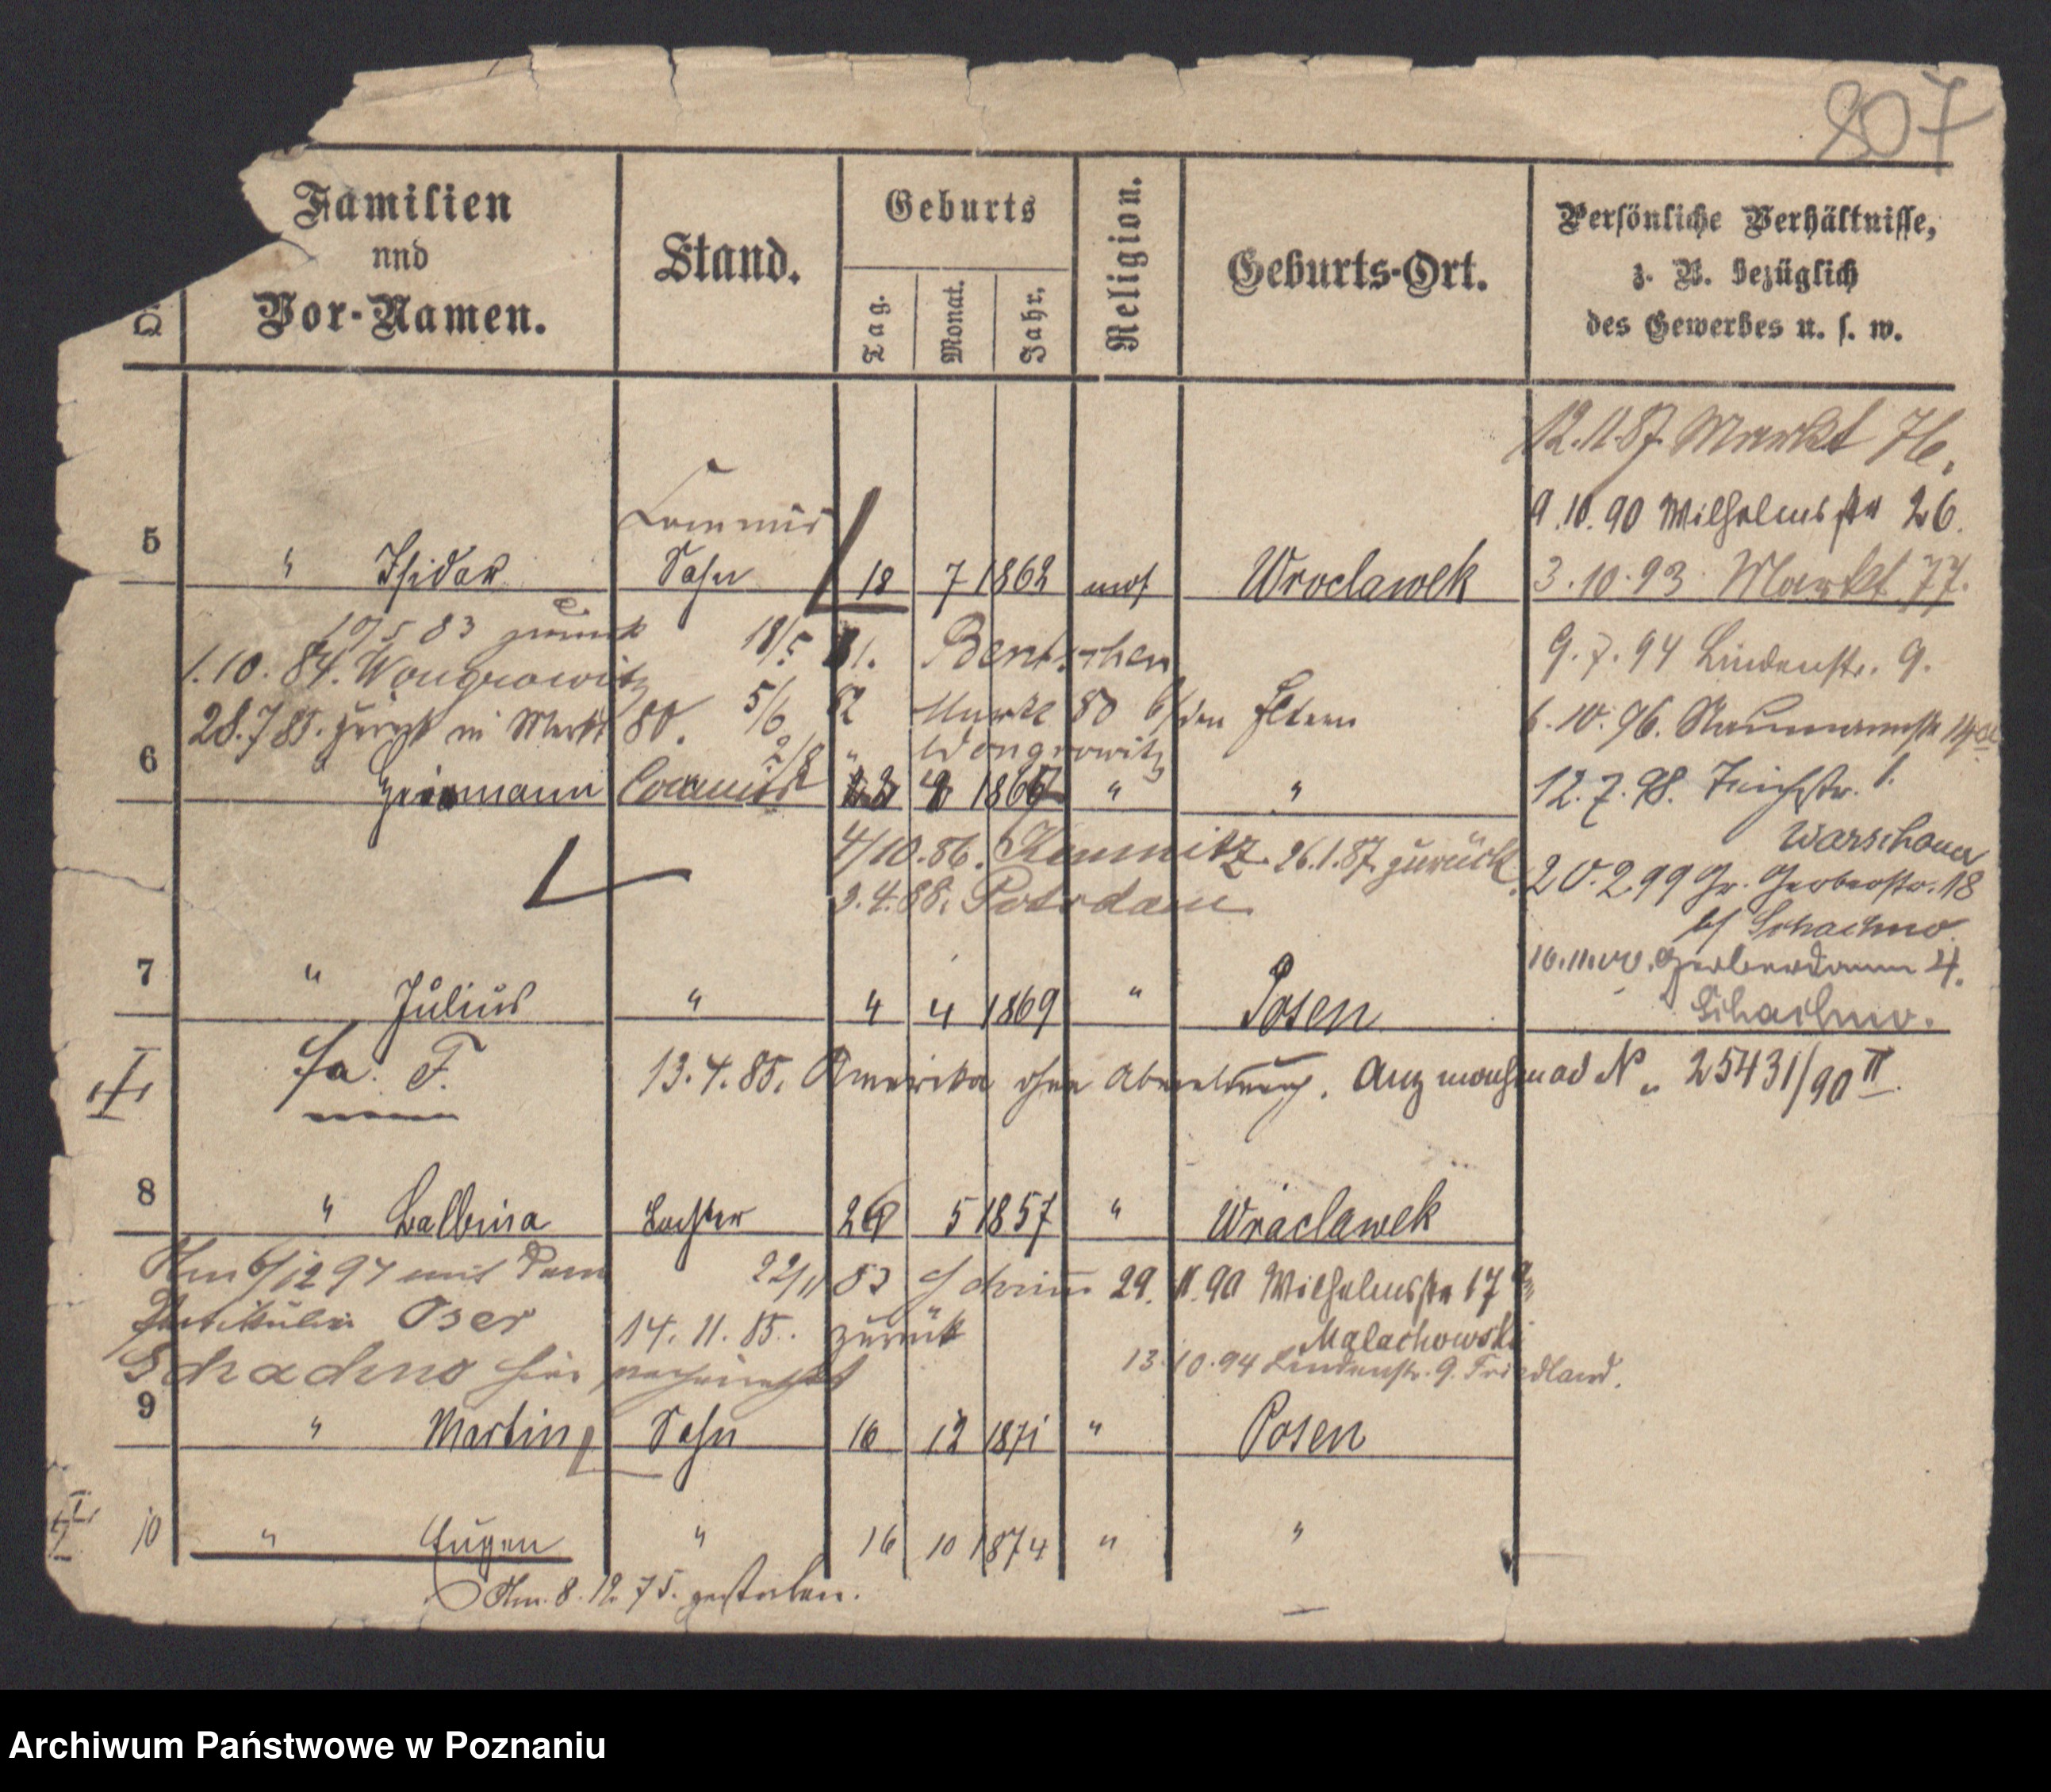 807
Familien
und
Vor-Namen.
Stand.
Geburts
Tag.
Monat.
Jahr.
Religion.
Geburts-Ort.
Persönliche Verhältnisse,
z. B. bezüglich
des Gewerbes u. s. w.
12.11.87. Markt 76.
Commis
9.10.90 Wilhelmsstr 26.
5 " Isidor Sohn 18 7 1862 mos Wroclawek 3.10.93. Markt 77.
10/5 83 zurück 18/5 81. Bentschen
9.7.94 Lindenstr. 9.
1.10.84. Wongrowitz
5/6 82 Markt 80 b/den Eltern
6.10.96. Naumannstr 14a
28.7.85. zurück in Markt 80.
2/8 " Wongrowitz
6 Herrmann Commis 1867 " " 12.7.98. Teichstr. 1.
4/10.86. Kemnitz. 26.1.87. zurück
Warschauer
20.2.99 Gr. Gerberstr. 18
3.4.88. Potsdam
b/ Schachno
10.11.00. Gerberdamm 4.
7 " Julius " 4 4 1869 " Posen Schachno.
fa. F. 13.4.85. Amerika ohne Abmeldung. No 25431/90 II.
8 " Balbina Tochter 5 1857 " Wraclawek
Am 6/12 97 mit dem
22/11 83 Schrimm 29. 11.90 Wilhelmsstr 17
Oser
14.11.85. zurück
Malachowski
Schachno hier verheirathet
13.10.94 Lindenstr. 9. Friedland.
9 " Martin Sohn 16 12 1871 " Posen
10 " Eugen " 16 10 1874 " "
Am. 8.12.75. gestorben.
Archiwum Państwowe w Poznaniu